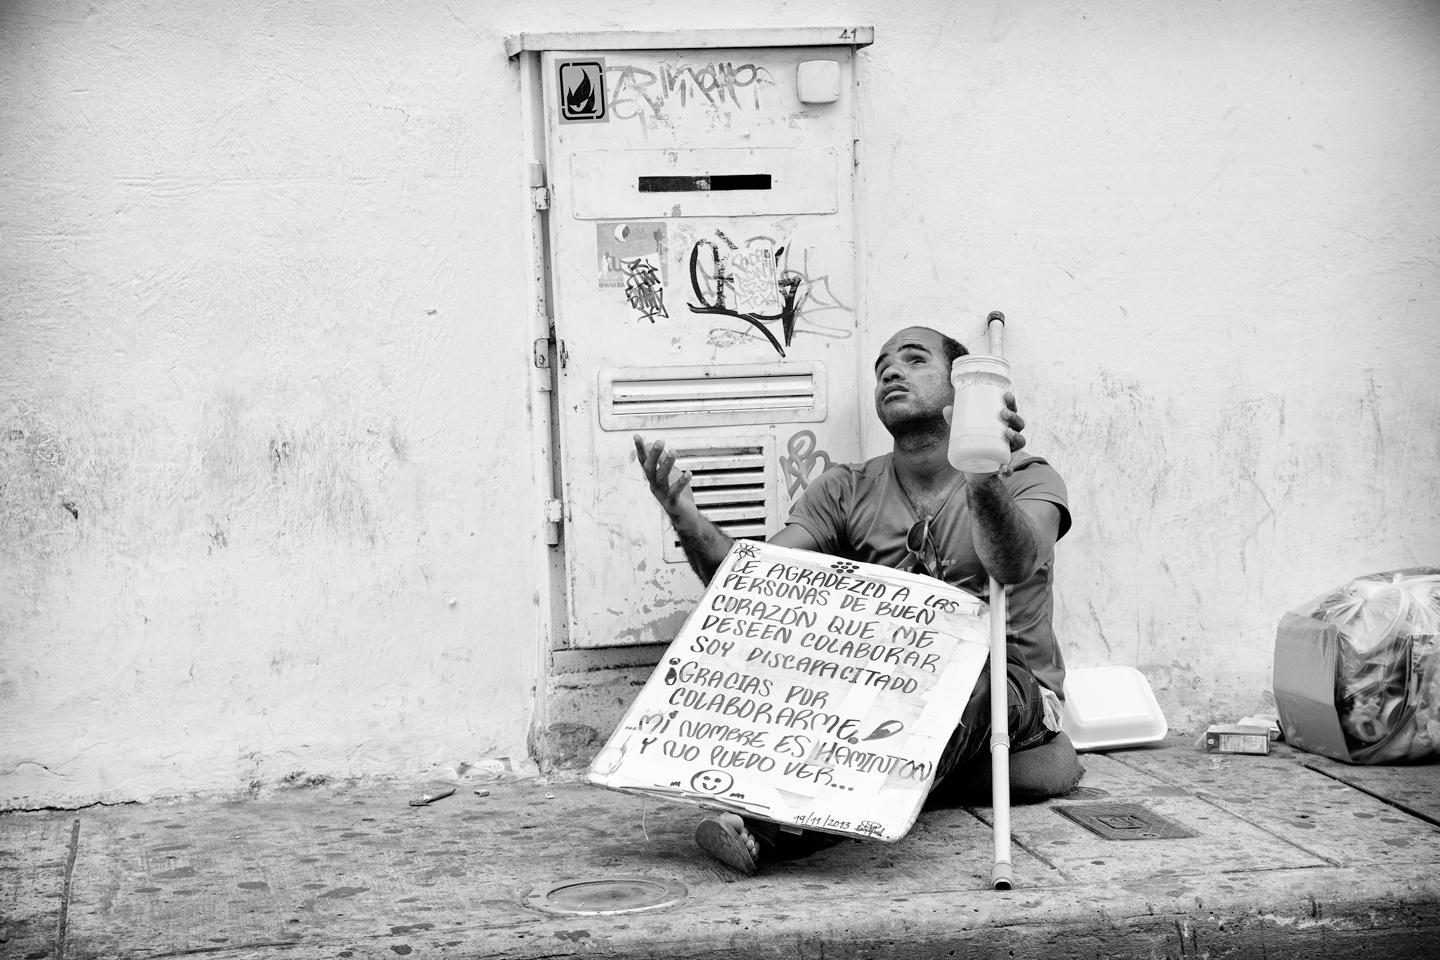 41
LE AGRADEZCO A LAS
PERSONAS DE BUEN
CORAZÓN QUE ME
DESEEN COLABORAR
SOY DISCAPACITADO
¡GRACIAS POR
COLABORARME!
..MI NOMBRE ES HAMINTON
Y NO PUEDO VER...
19/11/2013